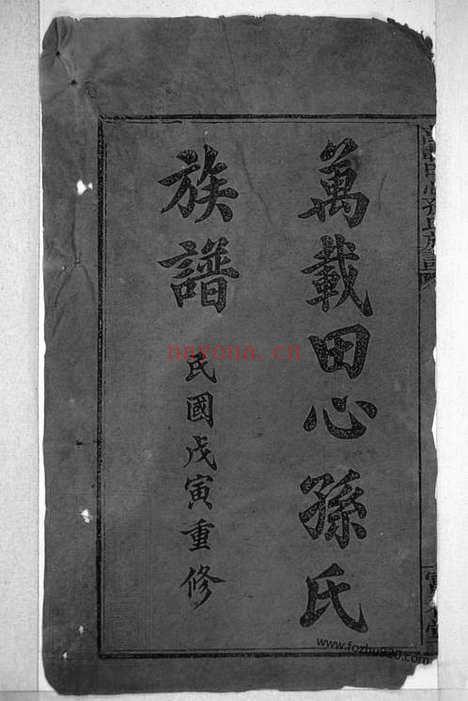 萬載田心孫氏
族譜
民國戊寅重修
nayona.cn
www.fozhu920.com